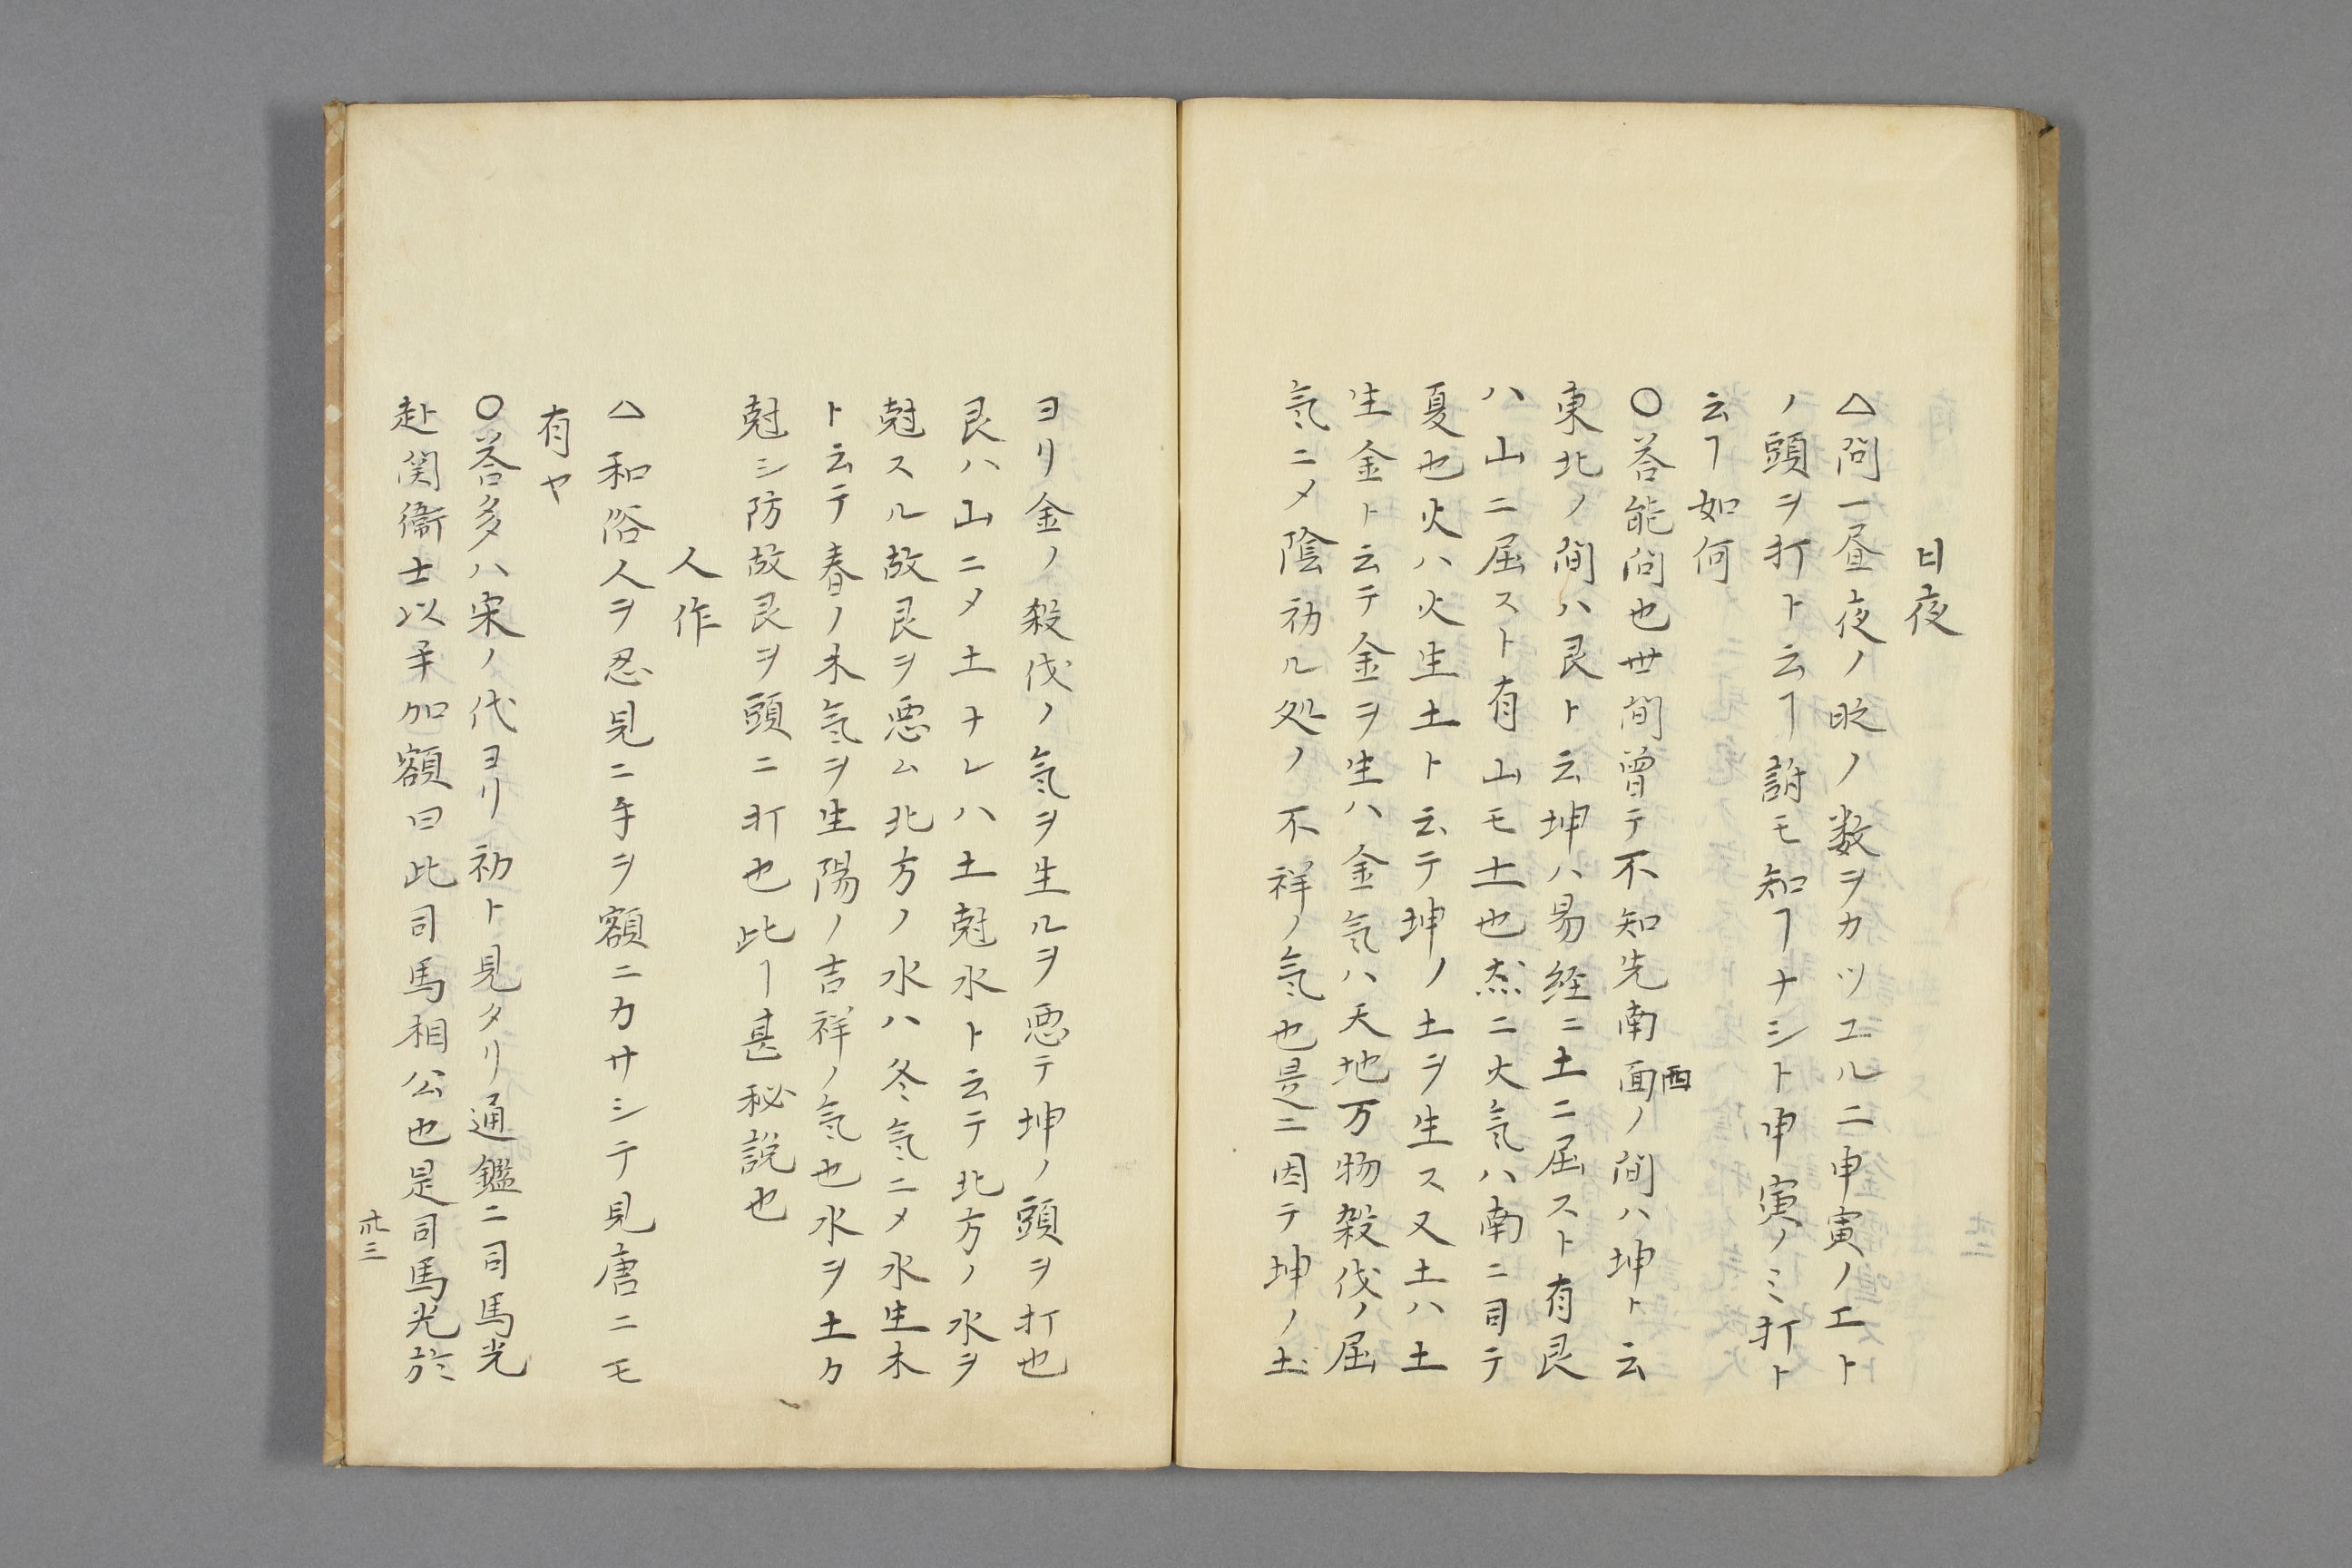 日夜
△問一昼夜ノ时ノ数ヲカソエルニ申寅ノエト
ノ頭ヲ打ト云ヿ誰モ知ヿナシト申寅ノミ打ト
云ヿ如何
○荅能问也世間曽テ不知先南面ノ間ハ坤ト云
西
東北ノ間ハ艮ト云坤ハ易経ニ土ニ屈スト有艮
ハ山ニ屈スト有山モ土也𤍠ニ火氣ハ南ニ司テ
夏也火ハ火生土ト云テ坤ノ土ヲ生ス又土ハ土
生金ト云テ金ヲ生ハ金氣ハ天地万物殺伐ノ屈
氣ニメ陰初ル処ノ不祥ノ氣也是ニ因テ坤ノ土
ヨリ金ノ殺伐ノ氣ヲ生ルヲ悪テ坤ノ頭ヲ打也
艮ハ山ニメ土ナレハ土尅水ト云テ北方ノ水ヲ
尅スル故艮ヲ悪ム北方ノ水ハ冬氣ニメ水生木
ト云テ春ノ木氣ヲ生陽ノ吉祥ノ氣也水ヲ土カ
尅シ防故艮ヲ頭ニ打也此ヿ甚秘説也
人作
△和俗人ヲ忍見ニ手ヲ額ニカサシテ見唐ニモ
有ヤ
○荅多ハ宋ノ代ヨリ初ト見タリ通鑑ニ司馬光
赴関衞士以手加額曰此司馬相公也是司馬光於
卅三